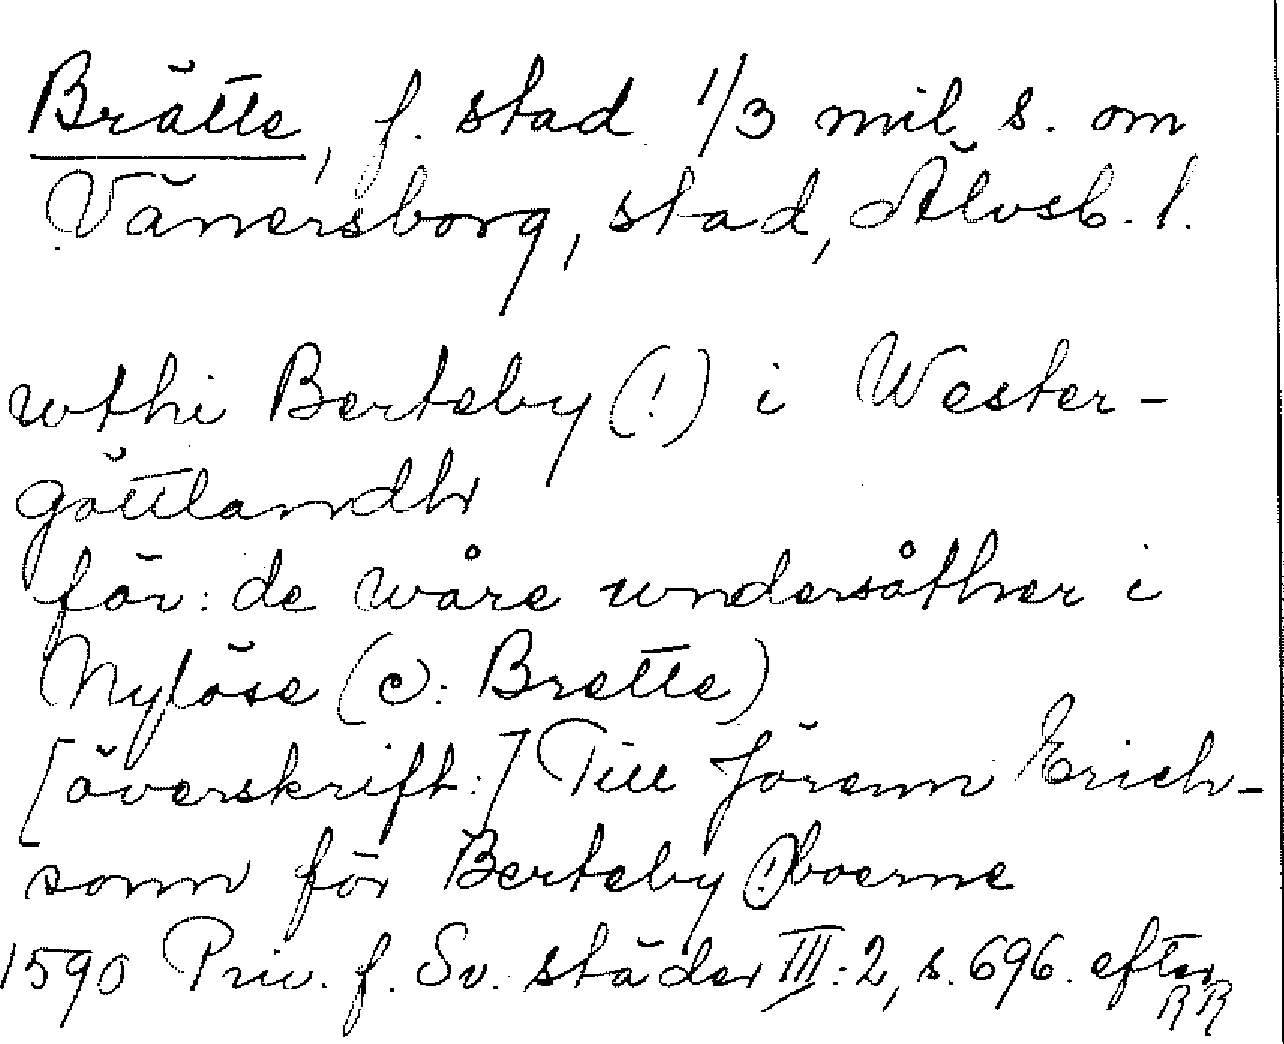 Brätte, f. stad 1/3 mil s. om
Vänersborg, stad, Älvsb. l.
wthi Berteby (!) i Wester-
göttlandh
för: de wåre undersåther i
Nylöse (ɔ: Brette)
[överskrift:] Till Jörenn Erich-
sonn för Berteby (!) boerne
1590 Priv. f. Sv. städer III:2, s. 696. efter
RR